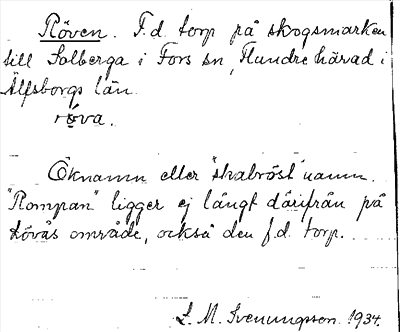 Röven. F.d. torp på skogsmarken
till Solberga i Fors sn, Flundre härad i
Älfsborgs län.
röva.
Öknamn eller "skabröst"namn.
"Rompan" ligger ej långt därifrån på
område, också den f.d. torp.
L. M. Svenungsson. 1934.